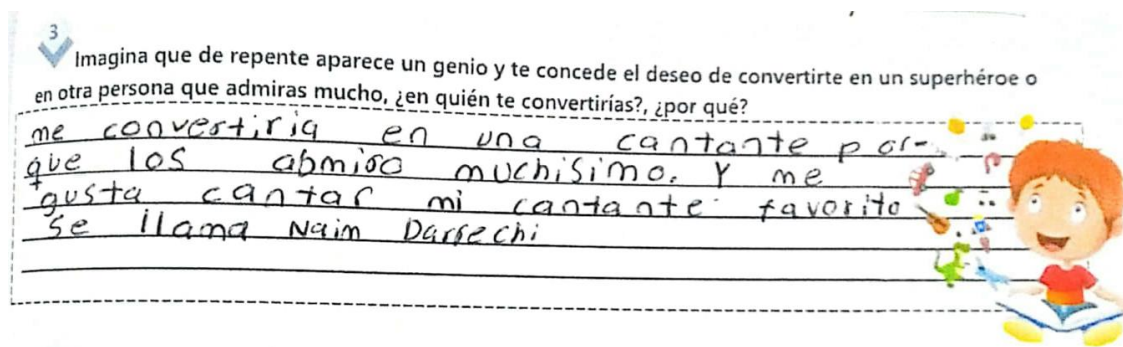 3
Imagina que de repente aparece un genio y te concede el deseo de convertirte en un superhéroe o
en otra persona que admiras mucho, ¿en quién te convertirías?, ¿por qué?
me convertiria en una cantante por-
que los abmiro muchisimo. Y me
gusta cantar mi cantante favorito
se llama Naim Darrechi